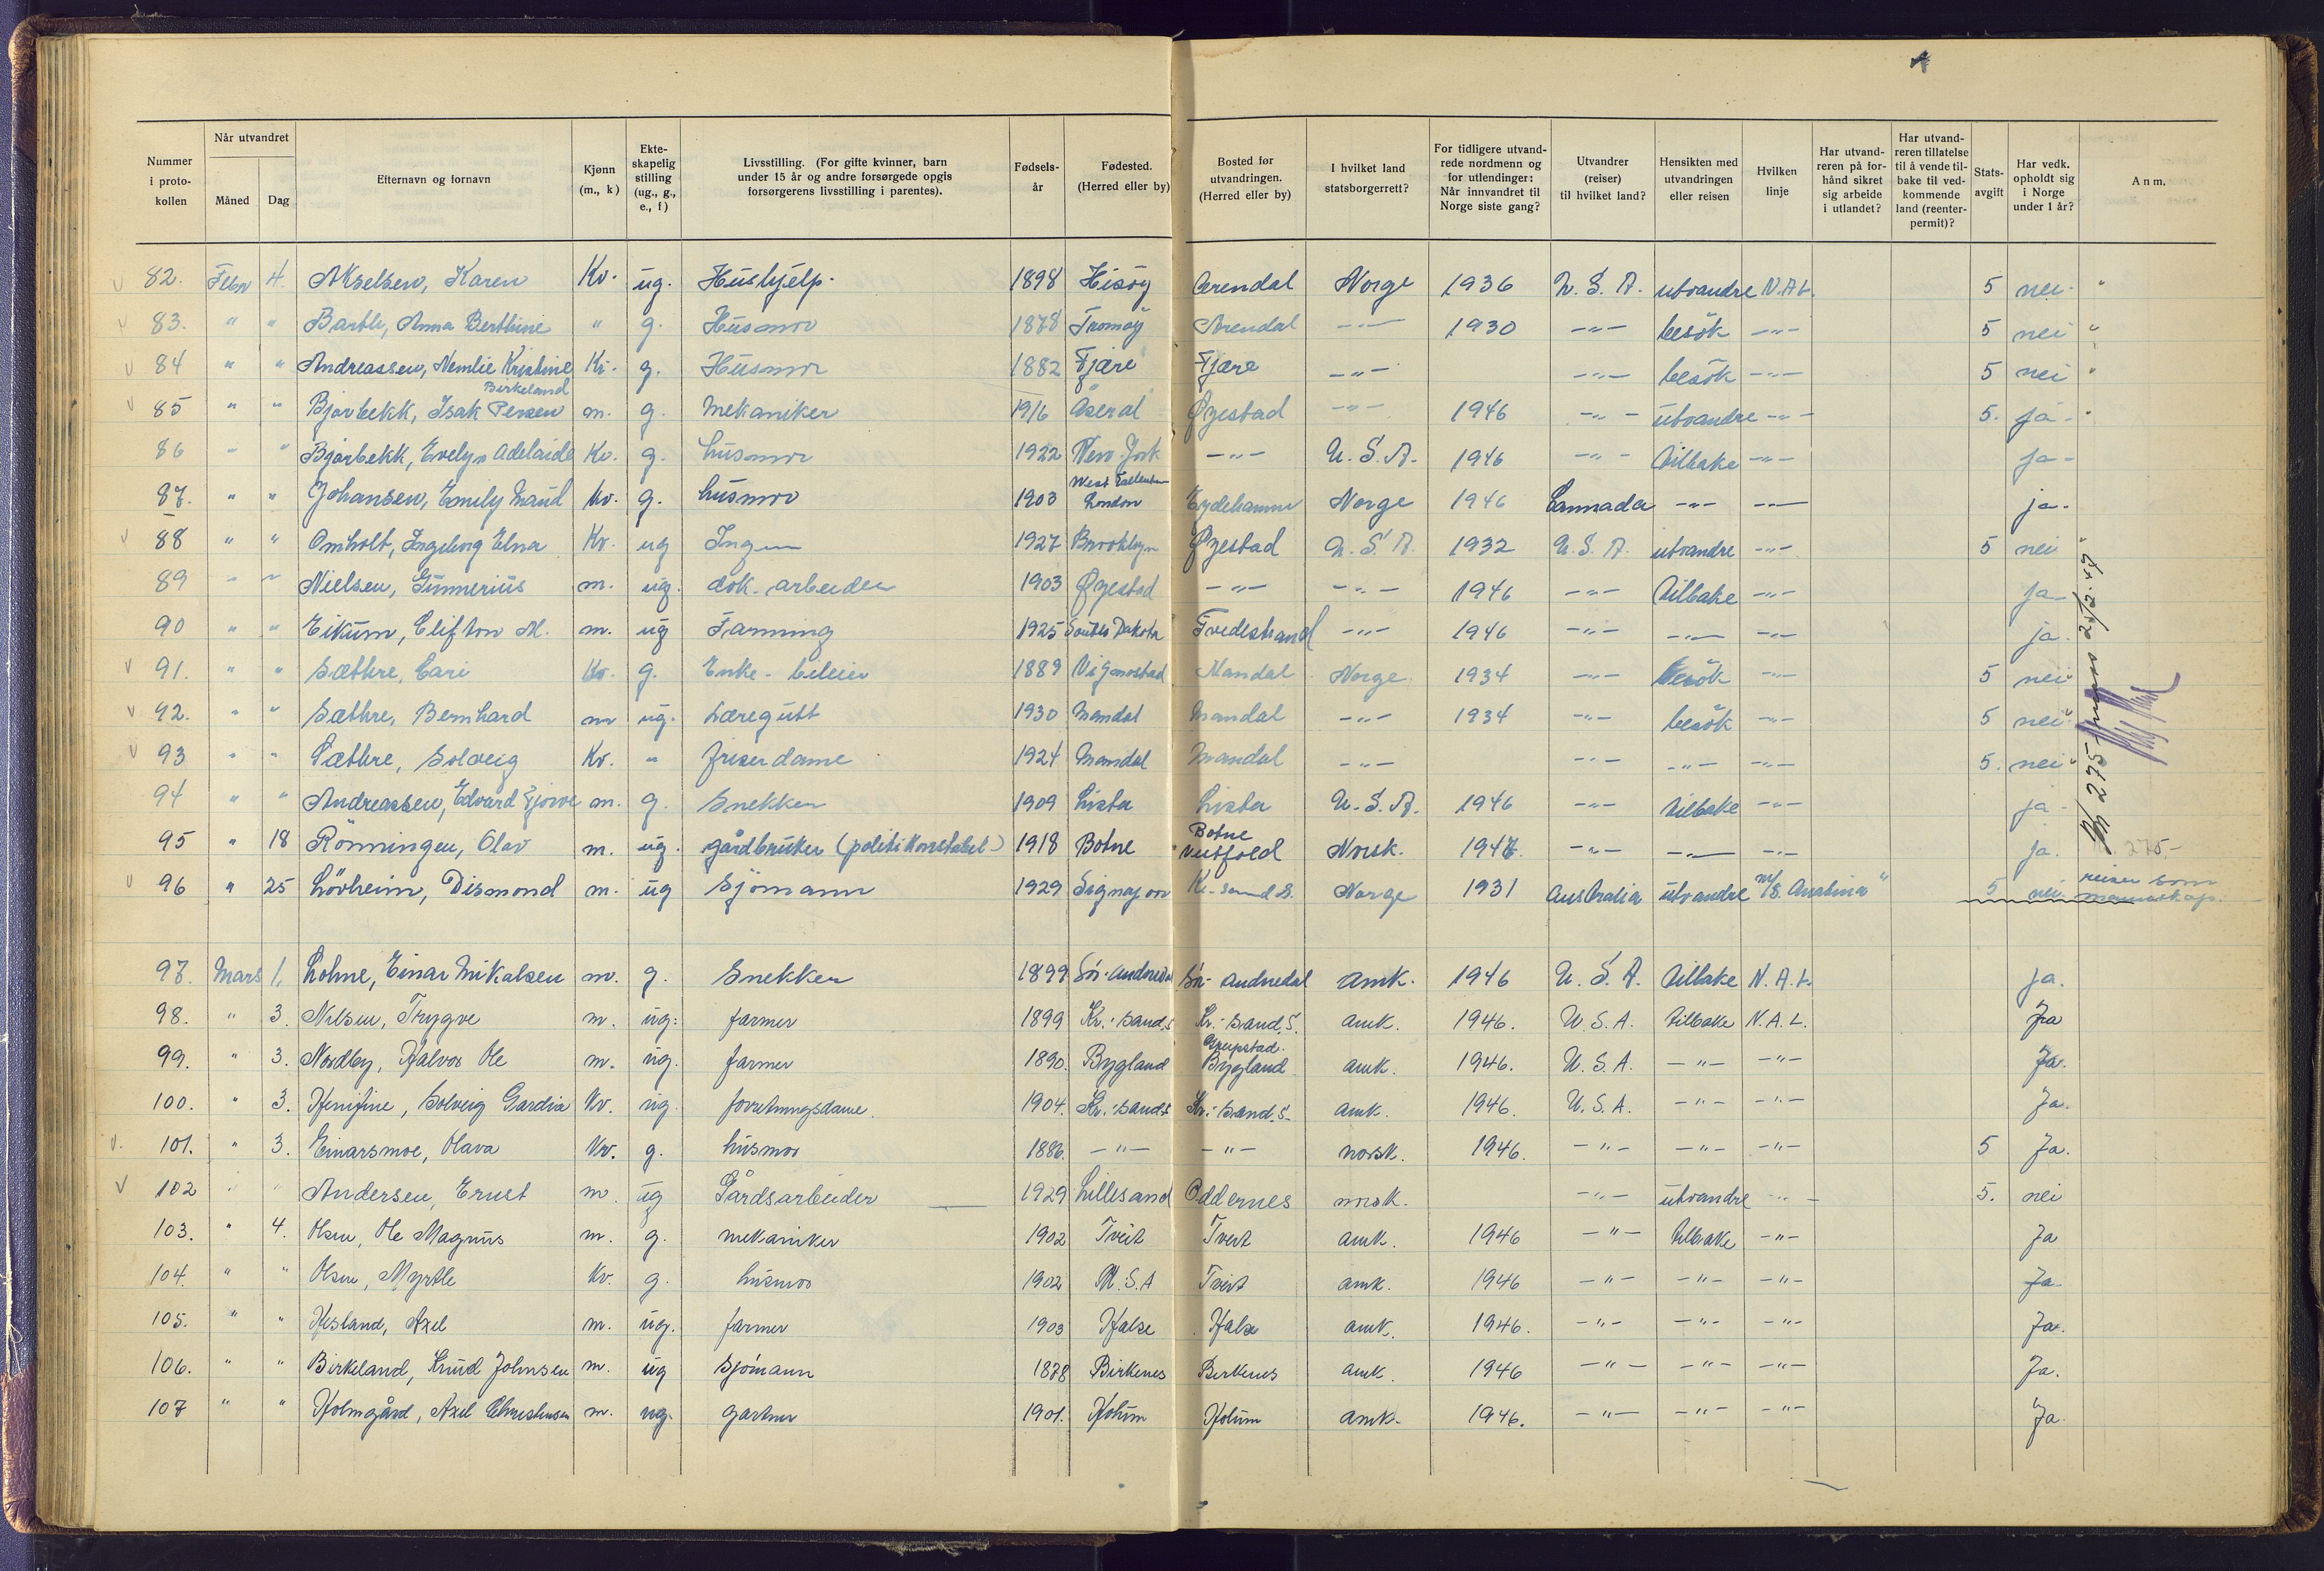 Nummer i protokollen | Når utvandret Måned | Dag | Efternavn og fornavn | Kjønn (m., k) | Ekteskapelig stilling (ug., g., e., f) | Livsstilling. (For gifte kvinner, barn under 15 år og andre forsørgede opgis forsørgerens livsstilling i parentes). | Fødselsår | Fødested. (Herred eller by) | Bosted før utvandringen. (Herred eller by) | I hvilket land statsborgerrett? | For tidligere utvandrede nordmenn og for utlendinger: Når innvandret til Norge siste gang? | Utvandrer (reiser) til hvilket land? | Hensikten med utvandringen eller reisen | Hvilken linje | Har utvandreren på forhånd sikret sig arbeide i utlandet? | Har utvandreren tillatelse til å vende tilbake til vedkommende land (reenterpermit)? | Statsavgift | Har vedk. opholdt sig i Norge under 1 år? | Anm.
82. Febr 4. Akselsen, Karen Kv. ug. Hushjelp. 1898 Hisøy Arendal Norge 1936 U.S.A. utvandre N.A.L. 5 nei "
83. " " Barth, Anna Berthine " g. Husmor 1878 Tromøy Arendal -"- 1930 -"- besök -"- 5 nei "
84 " " Andreassen, Kristine Kv. g. Husmor 1882 Fjære Fjære -"- -"- besök -"- 5 nei "
85 " " Bjorbekk, Isak Persen Birkeland m. g. mekaniker 1916 Åseral Øyestad -"- 1946 -"- utvandre -"- 5. ja. "
86 " " Bjorbekk, Evelyn Adelaide Kv. g. husmor 1922 New York -"- U.S.A. 1946 -"- tilbake -"- ja-
87. " " Johansen, Emily Maud kv. g. husmor 1903 West London Eydehamn Norge 1946 Cannada -"- -"- ja.
88 " " Omholt, Ingeborg Elna Kv. ug Ingen 1927 Brooklyn Øyestad U.S.A. 1932 U.S.A. utvandre -"- 5 nei
89 " " Nielsen, Gunnerius m. ug. dok. arbeider 1903 Øyestad -"- -"- 1946 -"- tilbake -"- ja
90 " " Eikum, Clifton M. m. ug Farming 1925 South Dakota Tvedestrand -"- 1946 -"- -"- -"- ja.
91. " " Sæthre, Cari Kv. g. Enke- 1889 Vigmostad Mandal Norge 1934 -"- besök -"- 5 nei "
92. " " Sæthre, Bernhard m ug. Læregutt 1930 Mandal Mandal -"- 1934 -"- besök -"- 5 nei "
93 " " Sæthre, Solveig Kv. " friserdame 1924 Mandal Mandal -"- -"- -"- -"- 5. nei "
94 " " Andreassen, Edvard m. g. Snekker 1909 Lista Lista U.S.A. 1946 -"- tilbake -"- ja-
95 " 18 Rönningen, Olav m. ug. gårdbruker (politikonstabel) 1918 Botne Botne Vestfold Norsk. 1947. -"- -"- -"- ja. 275.-
96 " 25 Lövheim, Dismond m. ug Sjömann 1929 Kr.-sand S. Norge 1931 Australia utvandre m/s. 5 nei. reiser som mannskap.
97. Mars 1. Lohne, Einar Mikalsen m. g. Snekker 1899 Sör-Audnedal Sör-Audnedal amk. 1946 U.S.A. tilbake N.A.L. ja.
98. " 3. Nilsen, Trygve m. ug. farmer 1899 Kr.-sand.S Kr.-sand.S. amk. 1946. U.S.A. tilbake N.A.L. Ja
99. " 3. Nordby, Halvor Ole m. ug. farmer 1890. Bygland Bygland amk. 1946. U.S.A. -"- -"- Ja.
100. " 3. Henifine, Solveig Gardia Kv. ug. forretningsdame. 1904. Kr.-sand.S Kr.-sand.S- amk. 1946. U.S.A. -"- -"- Ja.
101. " 3. Einarsmoe, Olava Kv. g. husmor 1886. -"- -"- norsk. 1946. -"- -"- -"- 5 Ja.
102 " " Andersen, Ernst m. ug Gårdsarbeider 1929 Lillesand Oddernes norsk. -"- utvandre -"- 5. nei
103. " 4. Olsen, Ole Magnus m. g. mekaniker 1902 Tveit Tveit amk. 1946 -"- tilbake -"- Ja
104. " " Olsen, Myrtle Kv. g. husmor 1902 U.S.A Tveit amk. 1946 -"- -"- -"- Ja
105. " " Hesland, Axel m. ug. farmer 1903 Halse Halse amk. 1946. -"- -"- -"- Ja.
106. " " Birkeland, Knud Johnsen m. ug sjömann 1878 Birkenes Birkenes amk. 1946 -"- -"- -"- Ja.
107 " " Holmgård, Axel Christensen m. ug. gartner 1901. Holum Holum amk. 1946. -"- -"- -"- Ja.